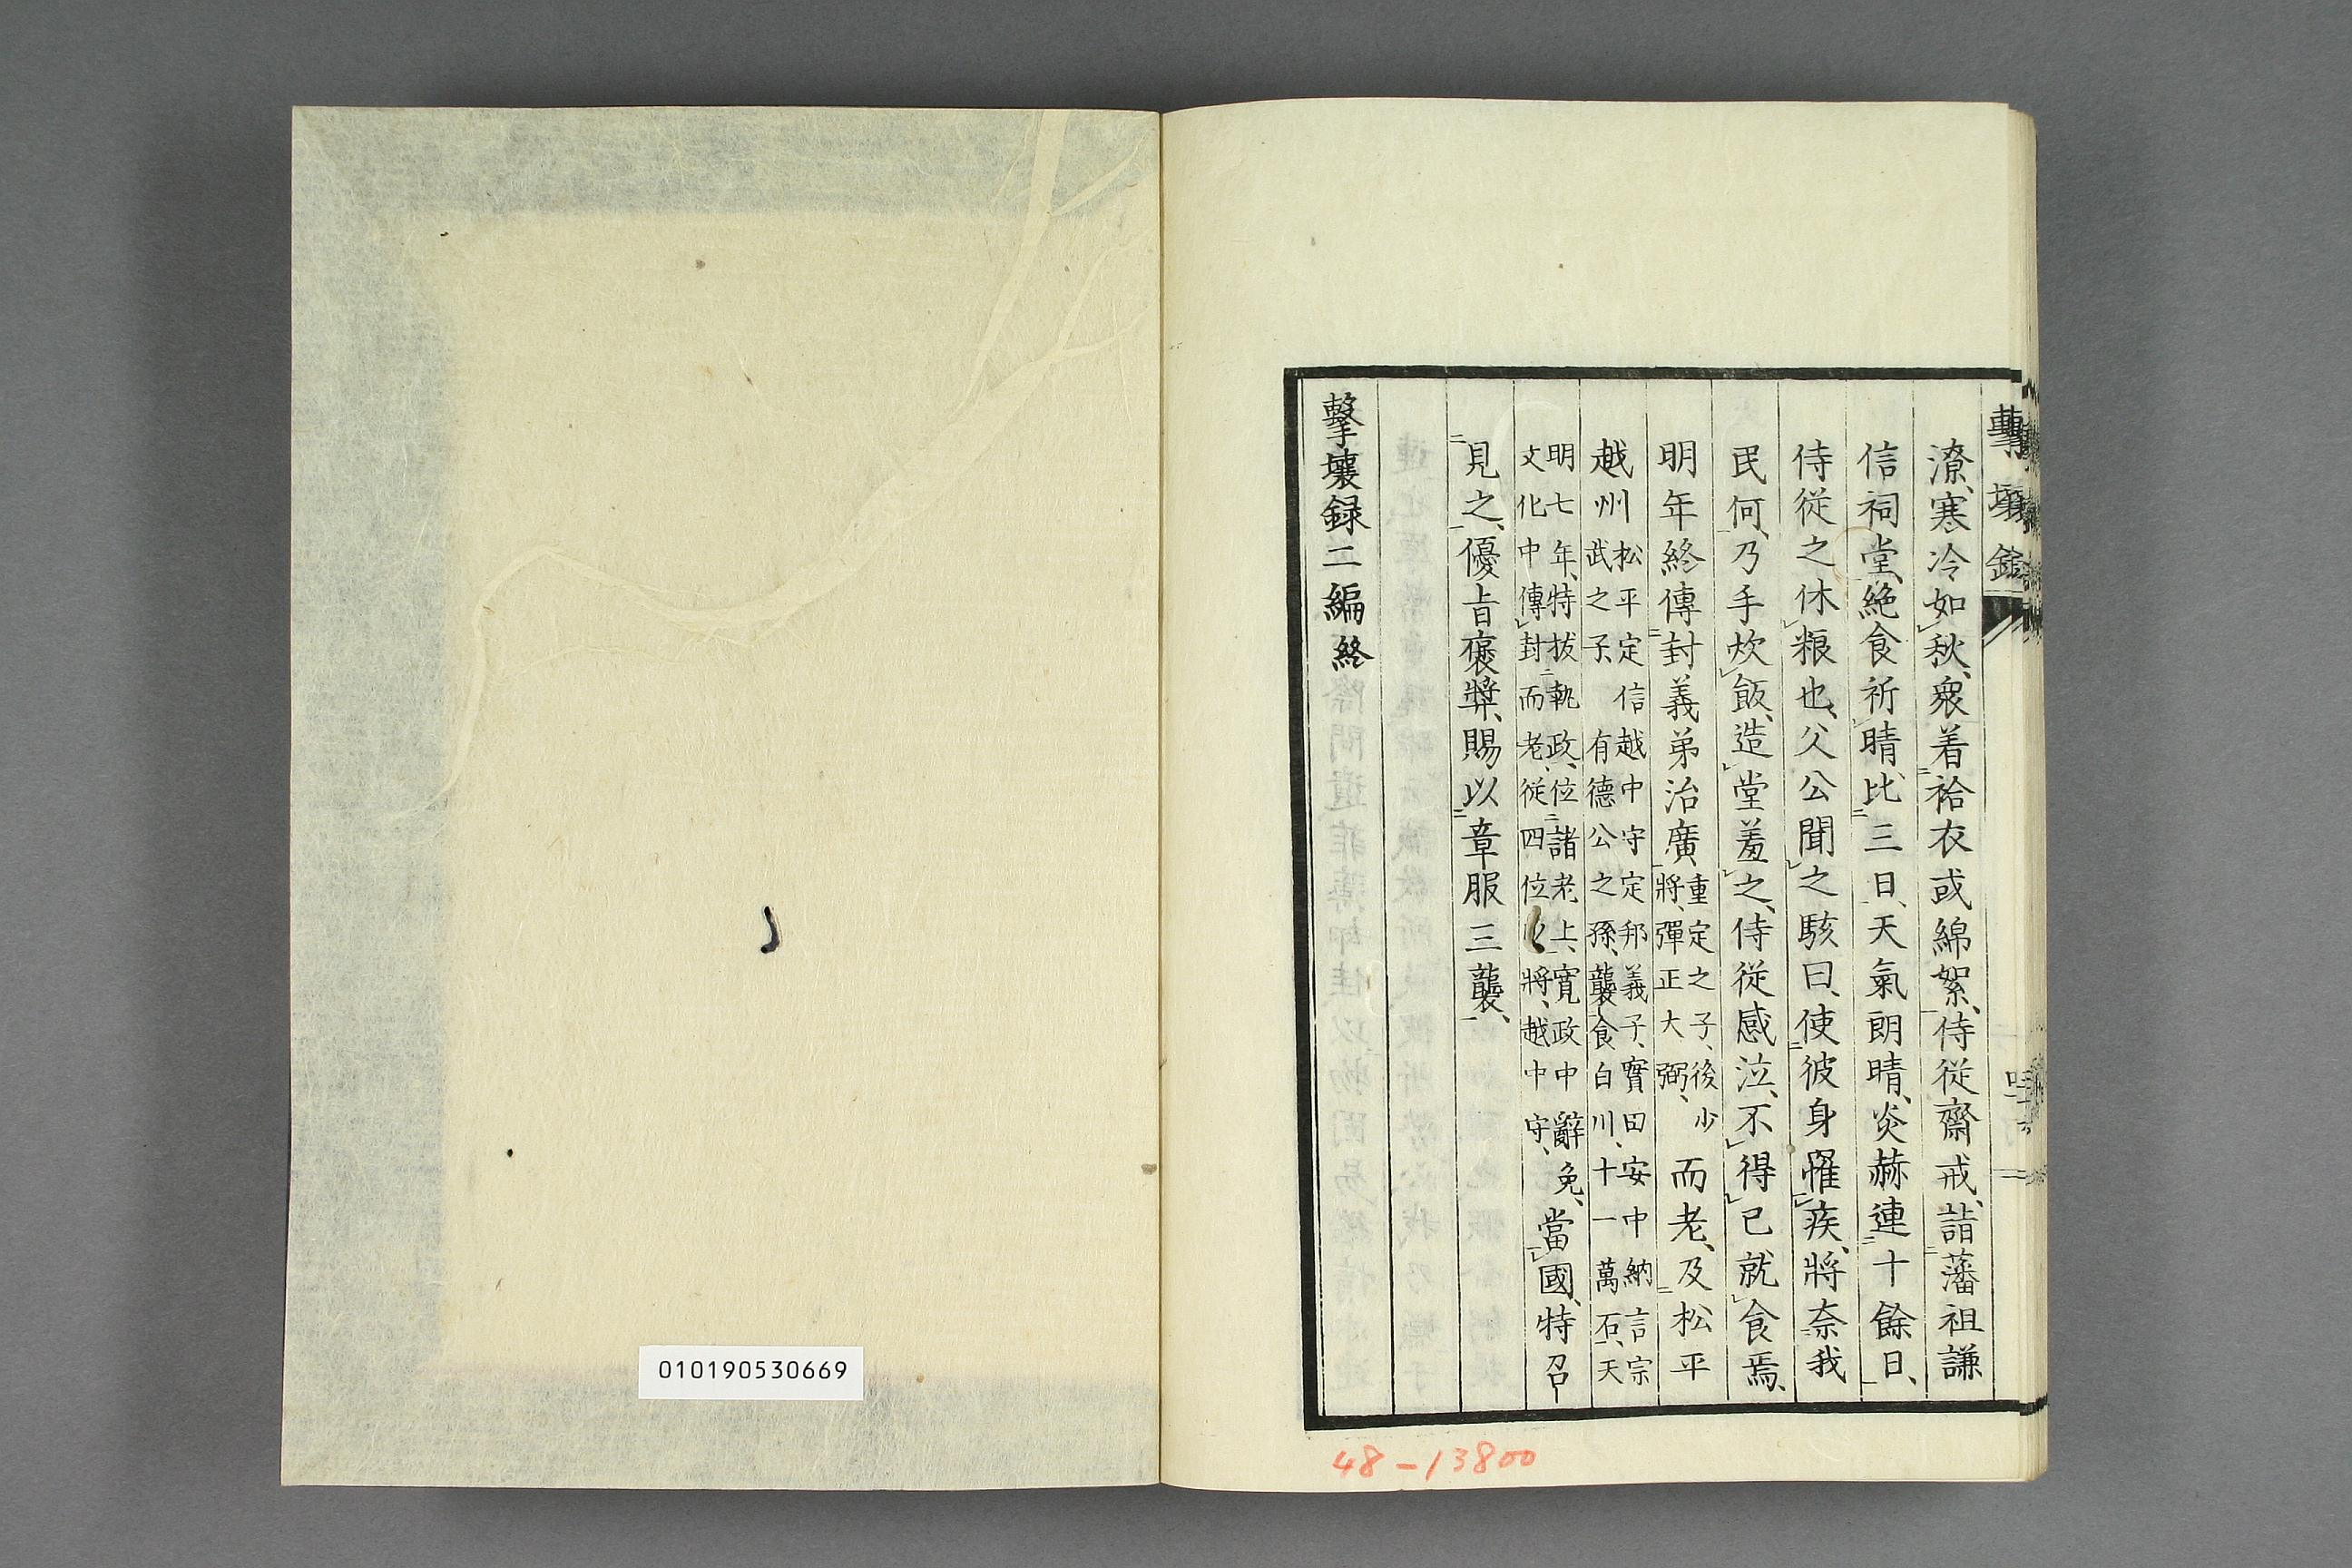 潦、寒冷如秋、衆着袷衣或綿絮、侍從齋戒、詣藩祖謙
信祠堂、絶食祈晴、比三日、天氣朗晴、炎赫連十餘日、
侍從之休粮也、父公聞之駭曰、使彼身罹疾、將奈我
民何、乃手炊飯、造堂羞之、侍從感泣、不得已就食焉、
明年終傳封義弟治廣、
重定之子、後少
將、彈正大弼、
而老、及松平
越
州
松平定信越中守定邦義子、實田安中納言宗
武之子、有德公之孫、襲食白川、十一萬石、天
明七年、特拔執政、位諸老上、寬政中辭免、
文化中傳封而老、從四位將、越中守、
當國、特召
見之、優旨褒奬、賜以章服三襲、
擊壤録二編終
010190530669
48-13800